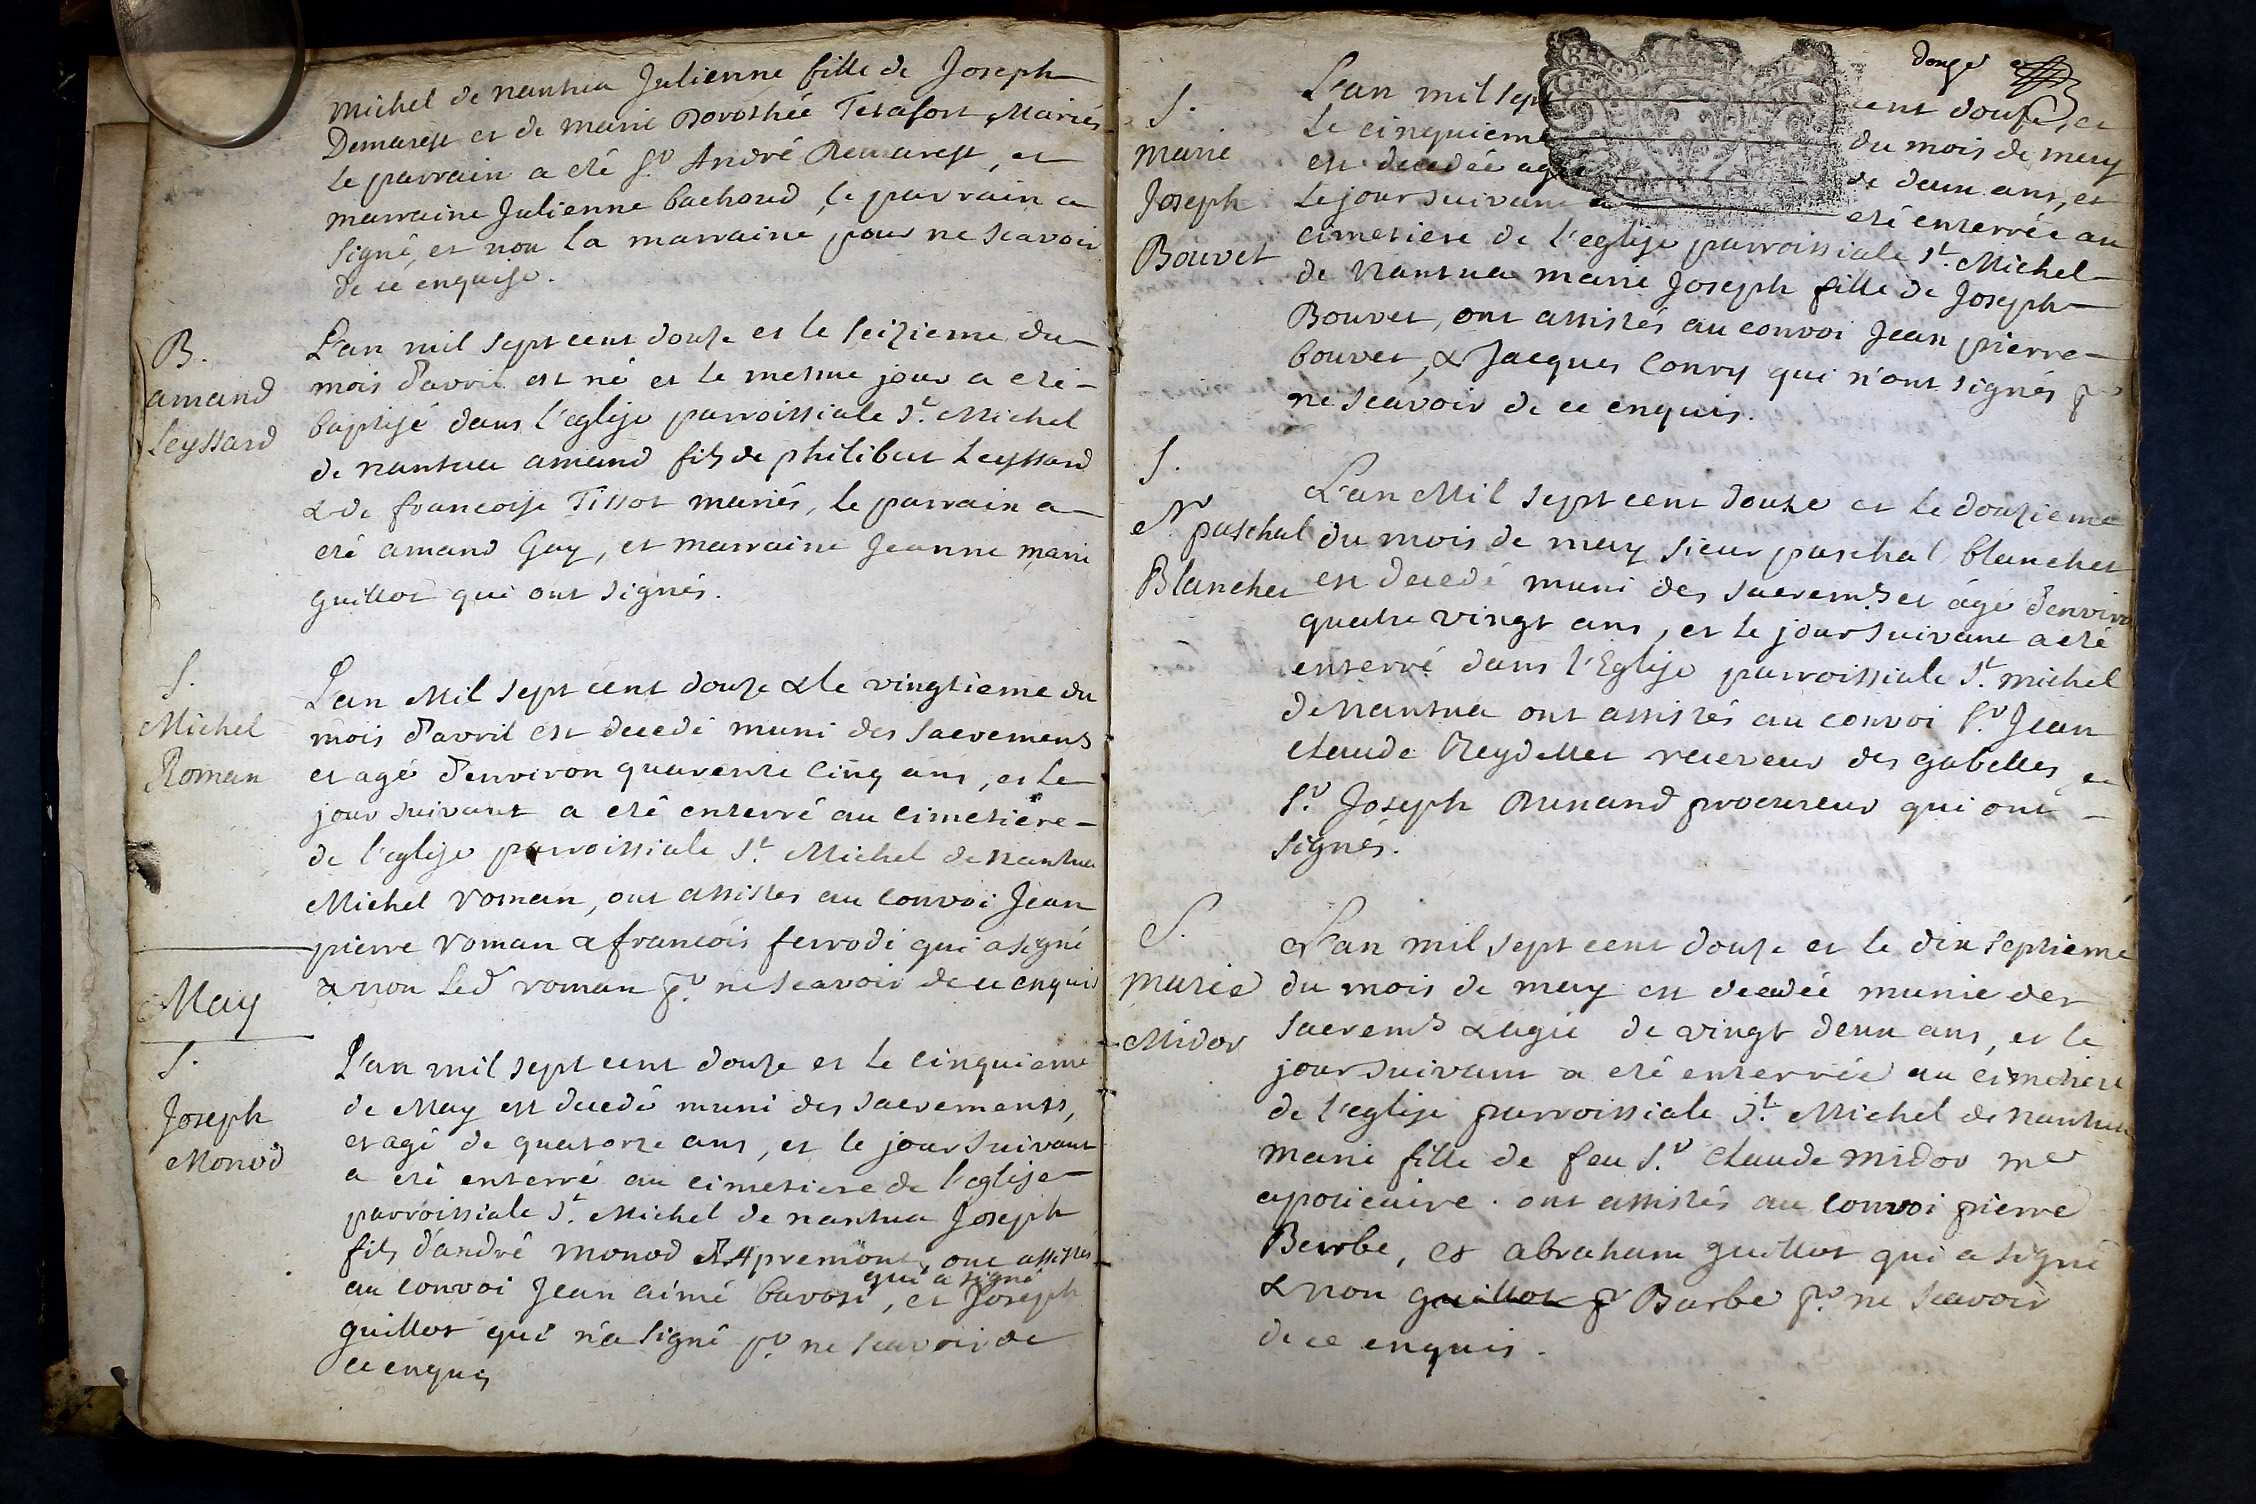 Michel de nantua Julienne fille de Joseph
Demarest et de marie Dorothée Tesafort Mariés
Le parrain a eté Sr. André Demarest, et
marraine Julienne bachoud, le parrain a
signé, et non la marraine pour ne scavoir
de ce enquise.
B.
amand
Leyssard
L'an mil sept cent douze et le seizieme du
mois d'avril est né et le mesme jour a eté
baptisé dans l'eglise parroissiale St. Michel
de nantua amand fils de philibert Leyssard
& de francoise Tissot mariés, le parrain a
eté amand Gay, et marraine Jeanne marie
guillot qui ont signés.
S.
Michel
Roman
L'an Mil sept cent douze & le vingtieme du
mois d'avril est decedé muni des sacremens
et agé d'environ quarente cinq ans, et le
jour suivant a eté enterré au cimetiere
de l'eglise parroissiale St. Michel de nantua
Michel roman, ont assistes au convoi Jean
pierre roman & francois ferrodi qui a signé
& non led roman pr. ne scavoir de ce enquis
May
S.
Joseph
Monod
L'an mil sept cent douze et le cinquieme
de May est decedé muni des sacrements,
et agé de quatorze ans, et le jour suivant
a eté enterré au cimetiere de l'eglise
parroissiale St. Michel de nantua Joseph
fils d'andré monod d'Apremont, ont assistés
au convoi Jean aimé bavosi qui a signé, et Joseph
guillot qui n'a signé pr. ne scavoir de
ce enquis
douze
S.
marie
Joseph
Bouvet
L'an mil sept cent douze, et
Le cinquieme du mois de may
est decedée agée de deux ans, et
Le jour suivant a eté enterrée au
cimetiere de l'eglise parroissiale St. Michel
de Nantua marie Joseph fille de Joseph
Bouvet, ont assistés au convoi Jean pierre
bouvet, & Jacques Convy qui n'ont signés pr
ne scavoir de ce enquis.
S.
Sr paschal
Blanchet
L'an Mil sept cent douze et le douzieme
du mois de may sieur paschal blanchet
est decedé muni des sacremts et agé d'environ
quatre vingt ans, et le jour suivant a eté
enterré dans l'Eglise parroissiale St. michel
de nantua ont assistés au convoi Sr. Jean
claude Reydellet receveur des gabelles, et
Sr. Joseph Runand procureur qui ont
signés.
S.
marie
Midor
L'an mil sept cent douze et le dix septieme
du mois de may est decedée munie des
sacremts & agée de vingt deux ans, et le
jour suivant a eté enterrée au cimetiere
de l'eglise parroissiale St. Michel de nantua
marie fille de feu Sr. Claude midor me
apoticaire. ont assistés au convoi pierre
Berrbe, et abraham guillot qui a signé
& non guillot pr Barbe pr. ne scavoir
de ce enquis.